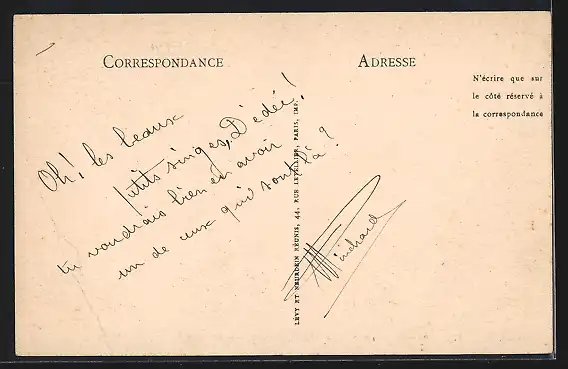 CORRESPONDANCE
ADRESSE
N'écrire que sur
le côté réservé à
la correspondance
Oh! les beaux
petits singes, Dédée!
tu voudrais bien en avoir
un de ceux qui sont là?
LÉVY ET NEURDEIN RÉUNIS, 44, RUE LETELLIER, PARIS, IMP.